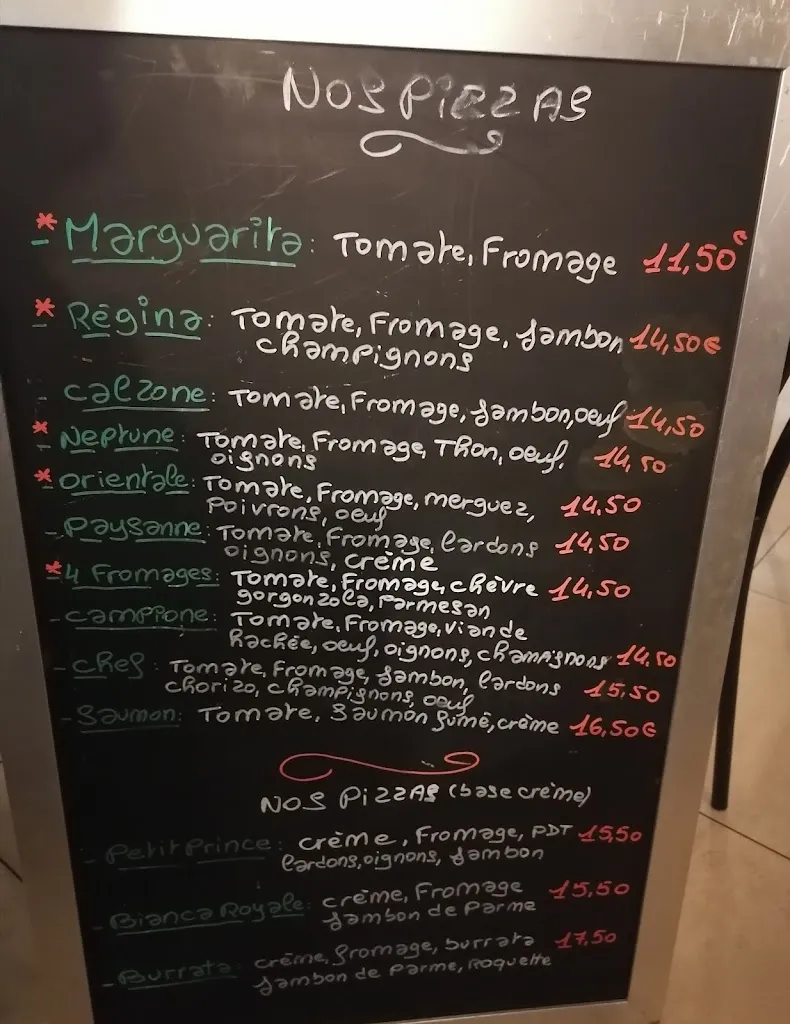 NOS PIZZAS
* - Marguarita: Tomate, Fromage 11,50€
* - Régina: Tomate, Fromage, Jambon 14,50€
champignons
- Calzone: Tomate, Fromage, Jambon, oeuf 14,50
* - Neptune: Tomate, Fromage, Thon, oeuf. 14,50
oignons
* - Orientale: Tomate, Fromage, merguez, 14.50
Poivrons, oeuf
- Paysanne: Tomate, Fromage, lardons 14,50
oignons, crème
* - 4 Fromages: Tomate, Fromage, chèvre 14,50
gorgonzola, Parmesan
- Campione: Tomate, Fromage, viande
hachée, oeuf, oignons, champignons 14,50
- Chef: Tomate, Fromage, Jambon, lardons 15,50
chorizo, champignons, oeuf
- Saumon: Tomate, Saumon fumé, crème 16,50€
NOS PIZZAS (base crème)
- Petit Prince: crème, Fromage, PDT 15,50
lardons, oignons, Jambon
- Bianca Royale: crème, Fromage 15,50
Jambon de Parme
- Burrata: crème, fromage, burrata 17,50
Jambon de Parme, Roquette